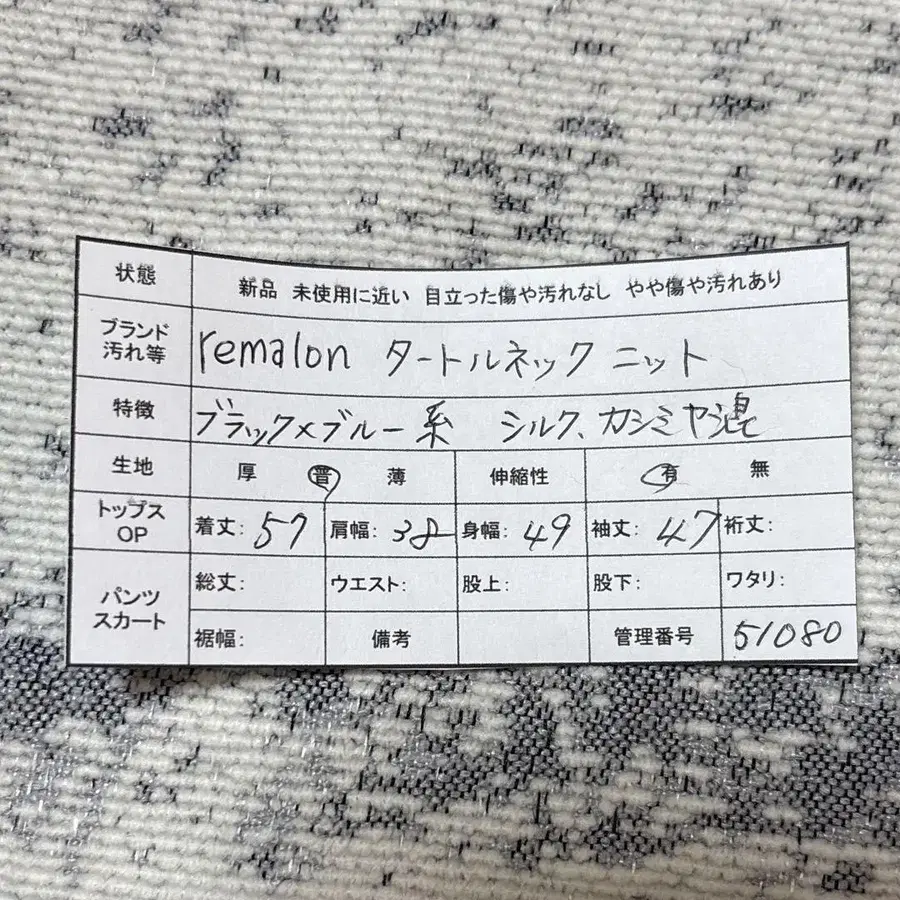 状態 新品 未使用に近い 目立った傷や汚れなし やや傷や汚れあり
ブランド 汚れ等 remalon タートルネック ニット
特徴 ブラック×ブルー系 シルク、カシミヤ混
生地 厚 普 薄 伸縮性 有 無
トップス OP 着丈: 57 肩幅: 38 身幅: 49 袖丈: 47 裄丈:
パンツ スカート 総丈: ウエスト: 股上: 股下: ワタリ:
裾幅: 備考 管理番号 51080